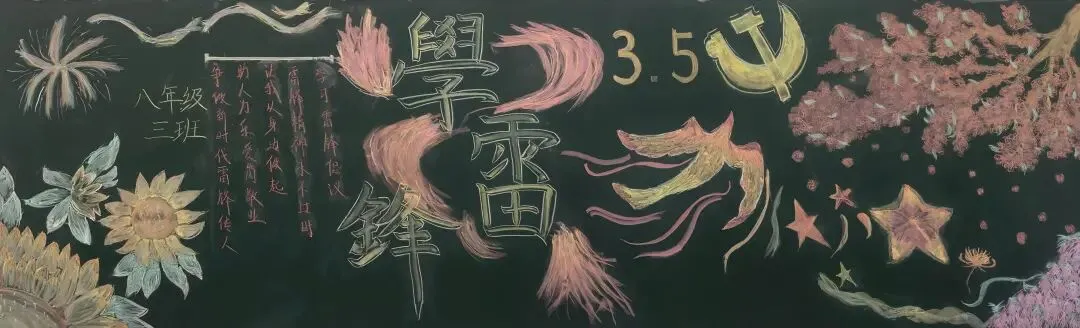 八年级
三班
學
雷
鋒
3.5
雷锋倡议
雷锋精神永不过时
从身边做起
助人为乐爱岗敬业
争做新时代雷锋传人